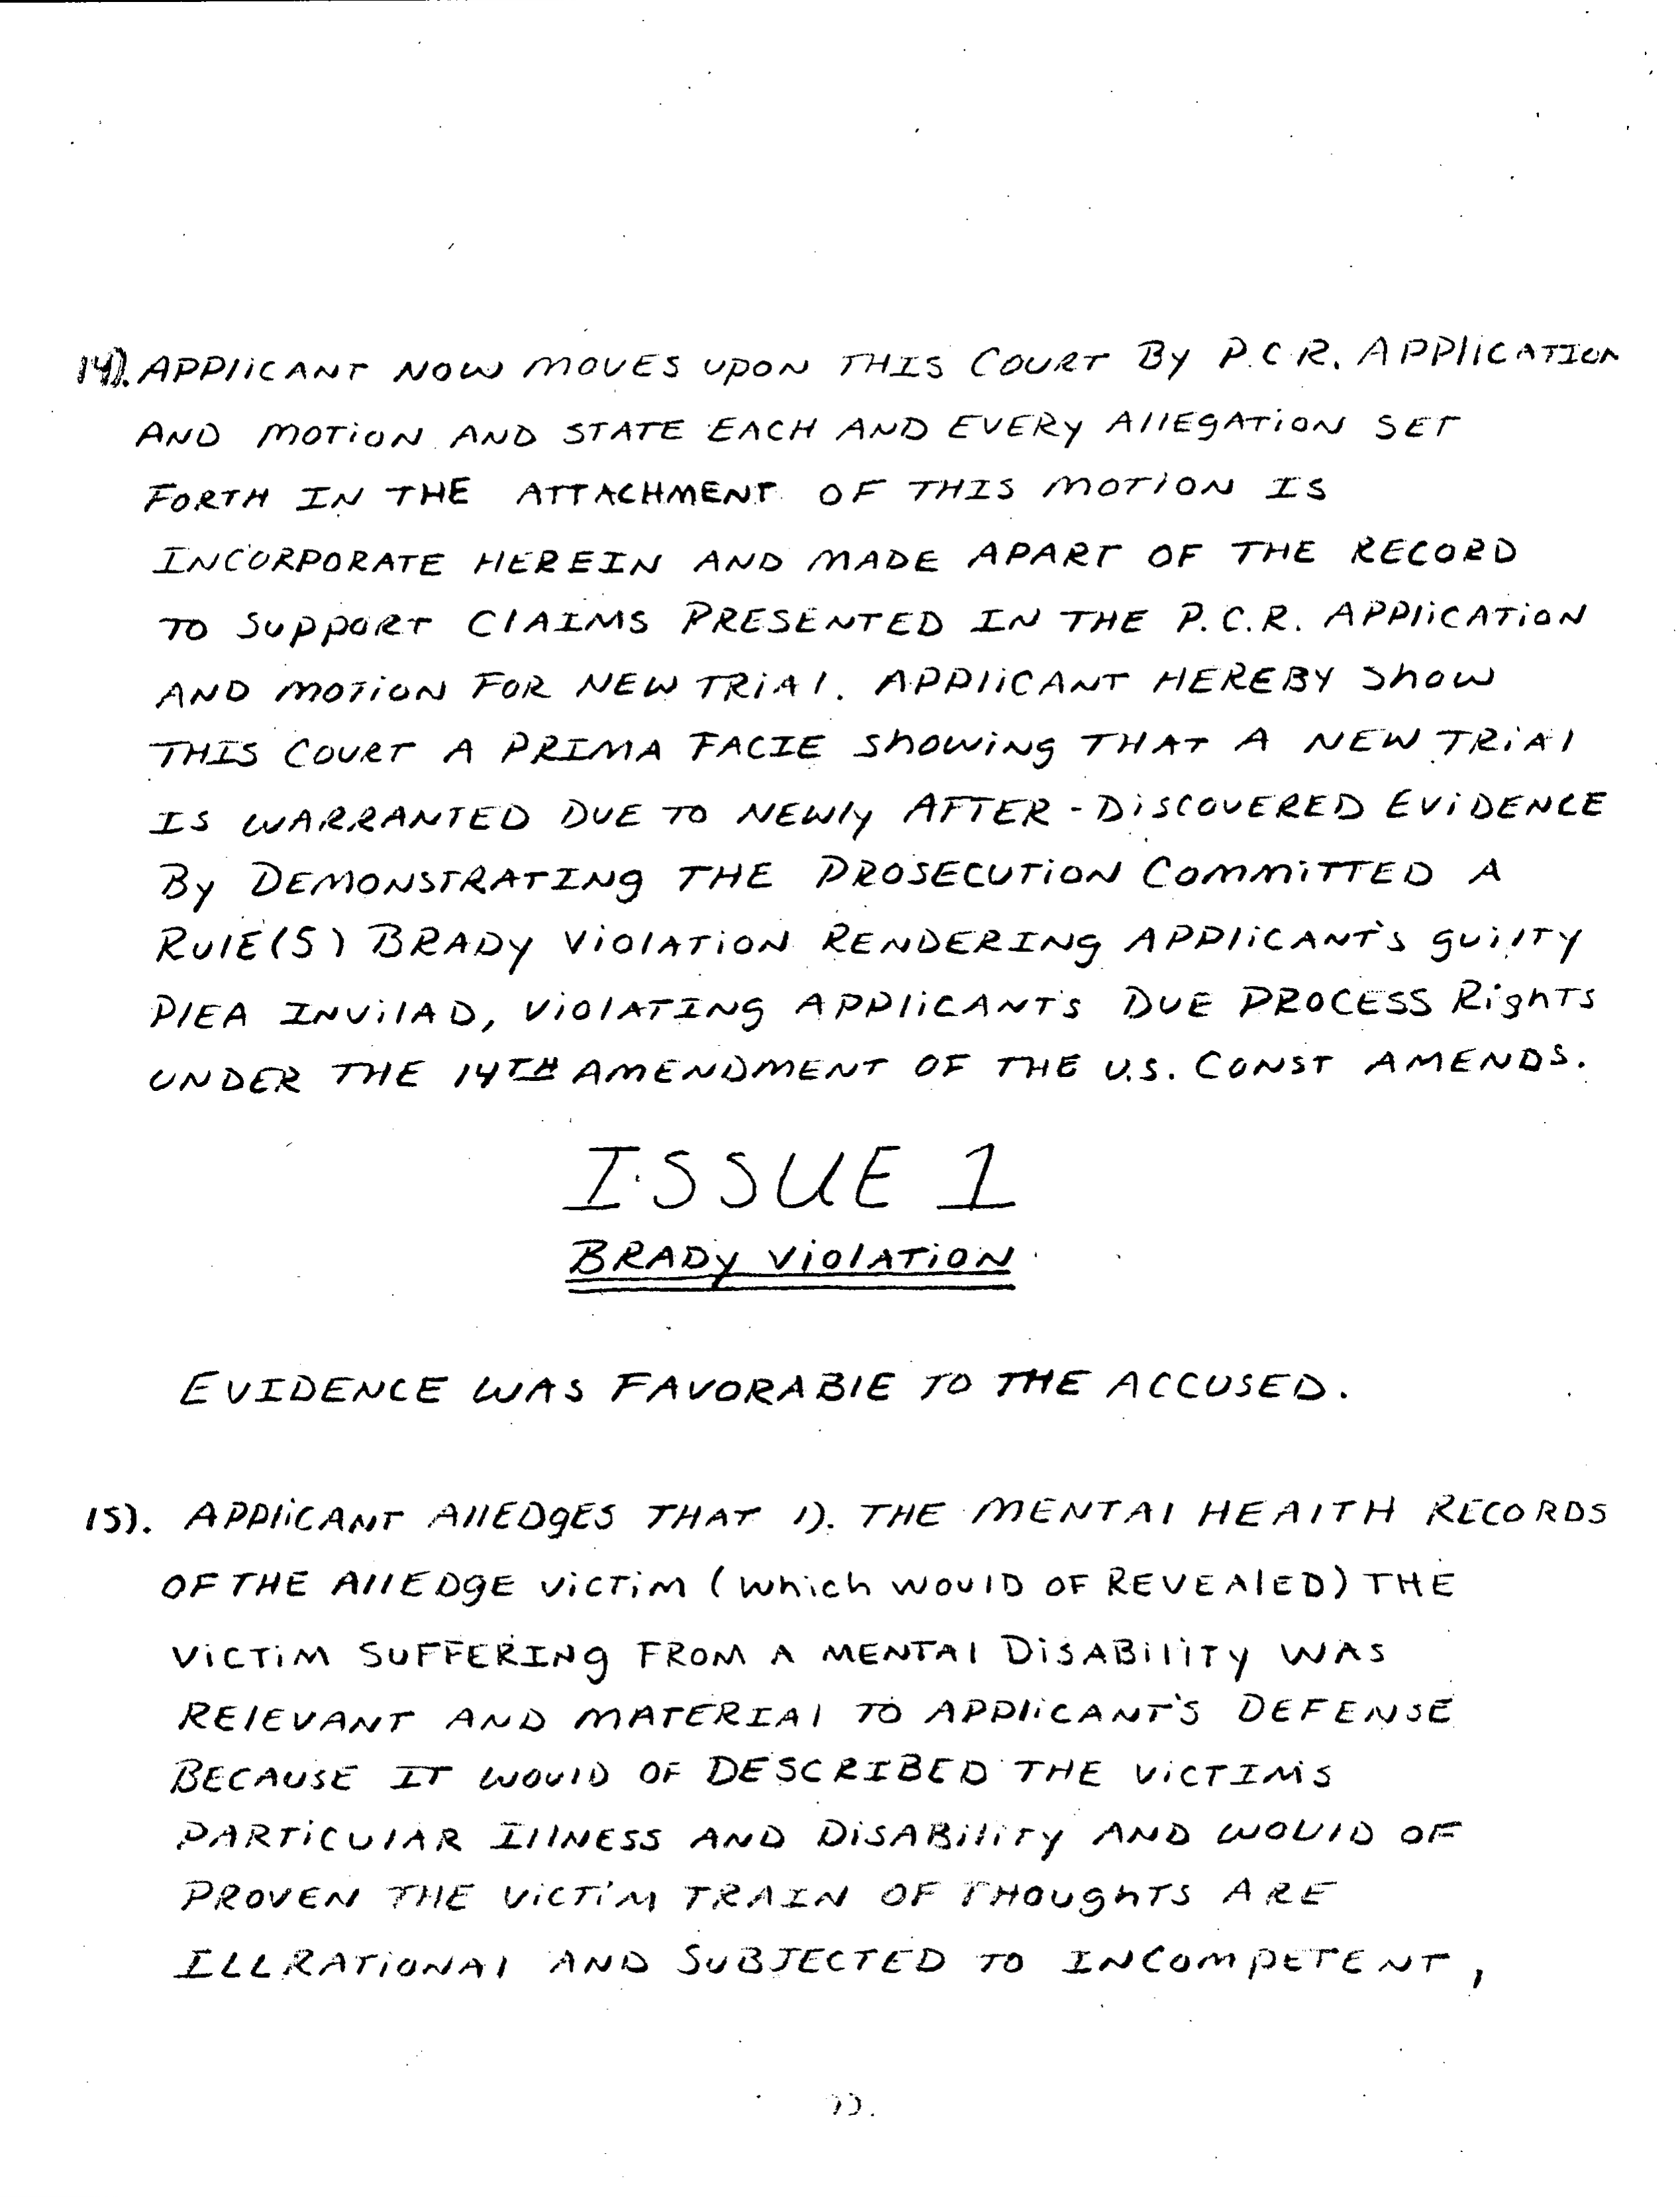 14). APPLICANT NOW MOVES UPON THIS COURT By P.C.R. APPLICATION
AND MOTION AND STATE EACH AND EVERY ALLEGATION SET
FORTH IN THE ATTACHMENT OF THIS MOTION IS
INCORPORATE HEREIN AND MADE APART OF THE RECORD
TO SUPPORT CLAIMS PRESENTED IN THE P.C.R. APPLICATION
AND MOTION FOR NEW TRIAL. APPLICANT HEREBY Show
THIS COURT A PRIMA FACIE showing THAT A NEW TRIAL
IS WARRANTED DUE TO NEWLY AFTER-DISCOVERED EVIDENCE
By DEMONSTRATING THE PROSECUTION COMMITTED A
RULE(5) BRADY VIOLATION RENDERING APPLICANT'S guilTY
PLEA INVILAD, VIOLATING APPLICANT'S DUE PROCESS RighTS
UNDER THE 14TH AMENDMENT OF THE U.S. CONST AMENDS.
ISSUE 1
BRADY VIOLATION
EVIDENCE WAS FAVORABLE TO THE ACCUSED.
15). APPLICANT ALLEDGES THAT 1). THE MENTAL HEALTH RECORDS
OF THE ALLEDGE VICTIM (which WOULD OF REVEALED) THE
VICTIM SUFFERING FROM A MENTAL DISABILITY WAS
RELEVANT AND MATERIAL TO APPLICANT'S DEFENSE
BECAUSE IT WOULD OF DESCRIBED THE VICTIM'S
PARTICULAR ILLNESS AND DISABILITY AND WOULD OF
PROVEN THE VICTIM TRAIN OF THOUghTS ARE
ILLRATIONAL AND SUBJECTED TO INCOMPETENT,